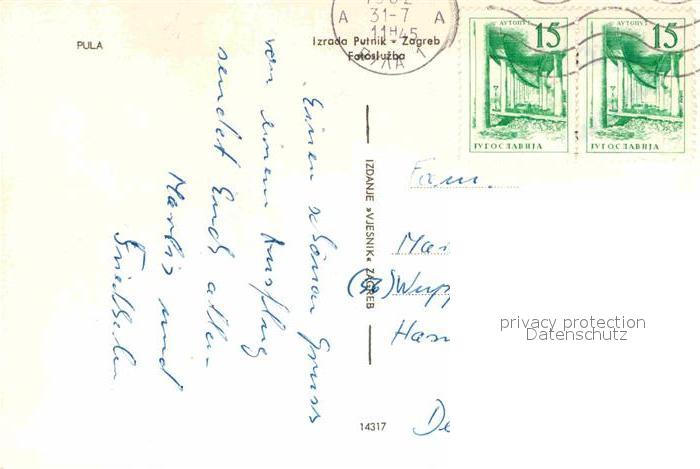 PULA
1962
A 31-7 A
11H45
Izrada Putnik - Zagreb
Fotoslužba
АУТОПУТ 15
ЈУГОСЛАВИЈА
АУТОПУТ 15
ЈУГОСЛАВИЈА
Einen schönen Gruss
von einem Ausflug
sendet Euch allen
und
Friedhelm
IZDANJE »VJESNIK« ZAGREB
14317
Fam.
(56) Wupp
De
privacy protection
Datenschutz